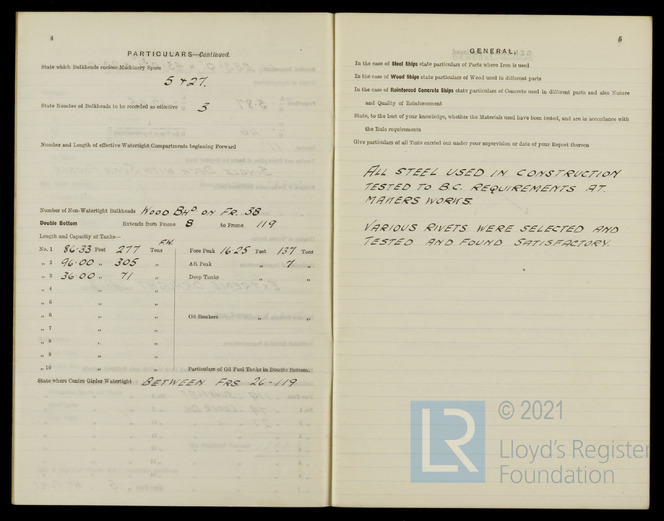 4
PARTICULARS—Continued.
State which Bulkheads enclose Machinery Space
5 & 27.
State Number of Bulkheads to be recorded as effective 3
Number and Length of effective Watertight Compartments beginning Forward
Number of Non-Watertight Bulkheads WOOD BHD ON FR. 38
Double Bottom Extends from Frame 8 to Frame 119
Length and Capacity of Tanks—
F.W.
No. 1 86·33 Feet 277 Tons Fore Peak 16·25 Feet 137 Tons
„ 2 96·00 „ 305 „ Aft Peak „ 7 „
„ 3 36·00 „ 71 „ Deep Tanks „ „
„ 4 „ „
„ 5 „ „
„ 6 „ „ Oil Bunkers „ „
„ 7 „ „
„ 8 „ „
„ 9 „ „
„ 10 „ „ Particulars of Oil Fuel Tanks in Double Bottom.
State where Centre Girder Watertight BETWEEN FRS 26-119
5
GENERAL.
In the case of Steel Ships state particulars of Parts where Iron is used
In the case of Wood Ships state particulars of Wood used in different parts
In the case of Reinforced Concrete Ships state particulars of Concrete used in different parts and also Nature
and Quality of Reinforcement
State, to the best of your knowledge, whether the Materials used have been tested, and are in accordance with
the Rule requirements
Give particulars of all Tests carried out under your supervision or date of your Report thereon
ALL STEEL USED IN CONSTRUCTION
TESTED TO B.C. REQUIREMENTS AT
MAKERS WORKS.
VARIOUS RIVETS WERE SELECTED AND
TESTED AND FOUND SATISFACTORY.
LR © 2021
Lloyd's Register
Foundation